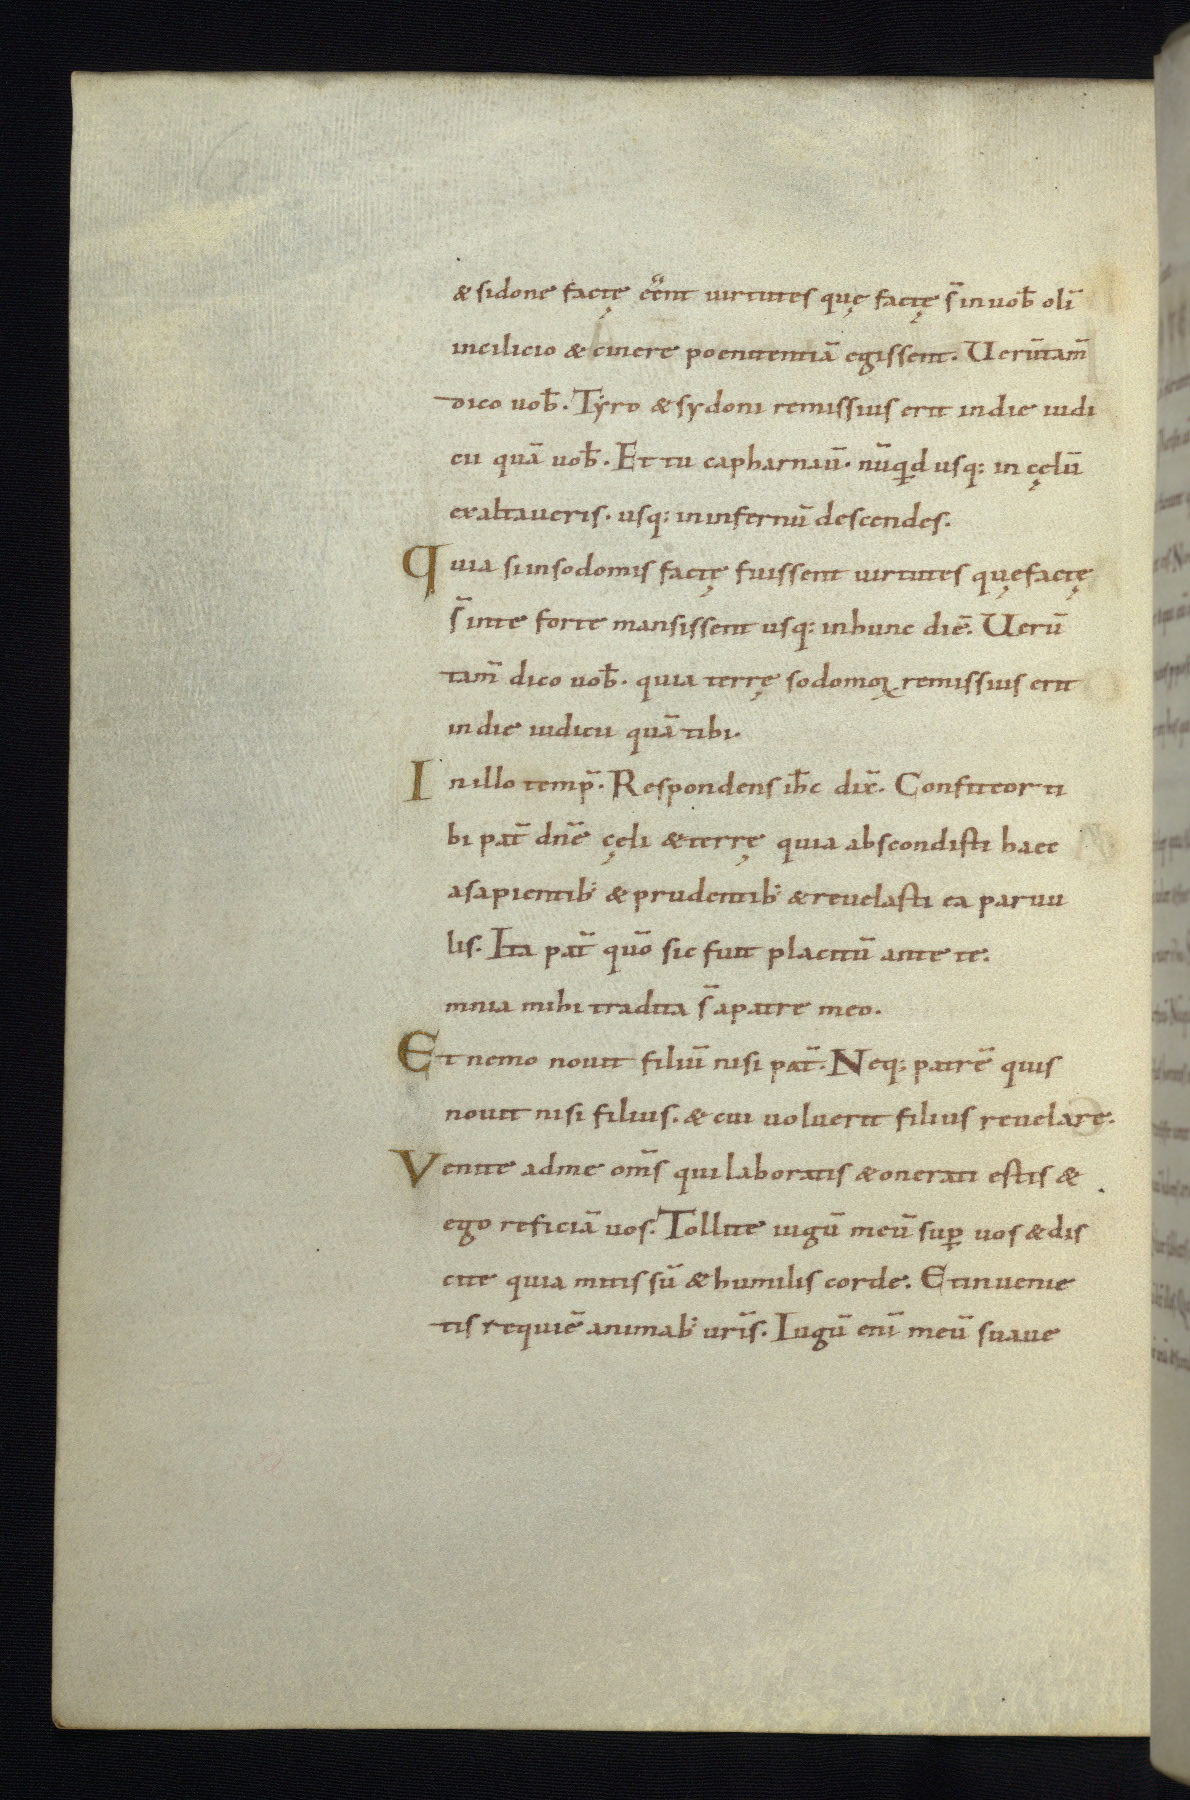 & sidone factę eēnt uirtutes quę factę s̄ in uob̄ olī
in cilicio & cinere poenitentiā egissent. Uerūtam̄
dico uob̄. Tẏro & sydoni remissius erit in die iudi
cii quā uob̄. Et tu capharnaū. nūqd usq; in cęlū
exaltaueris. usq; in infernū descendes.
Quia si in sodomis factę fuissent uirtutes quę factę
s̄ in te forte mansissent usq; in hunc diē. Uerū
tam̄ dico uob̄. quia terrę sodomoꝝ remissius erit
in die iudicii quā tibi.
In illo temp̄. Respondens ih̄c dix̄. Confiteor ti
bi pat̄ dn̄e cęli & terrę quia abscondisti haec
a sapientib; & prudentib; & reuelasti ea paruu
lis. Ita pat̄ quō sic fuit placitū ante te.
mnia mihi tradita s̄ a patre meo.
Et nemo nouit filiū nisi pat̄. Neq; patrē quis
nouit nisi filius. & cui uoluerit filius reuelare.
Venite ad me om̄s qui laboratis & onerati estis &
ego reficiā uos. Tollite iugū meū suꝑ uos & dis
cite quia mitis sū & humilis corde. Et inuenie
tis requiē animab; ur̄is. Iugū enī meū suaue